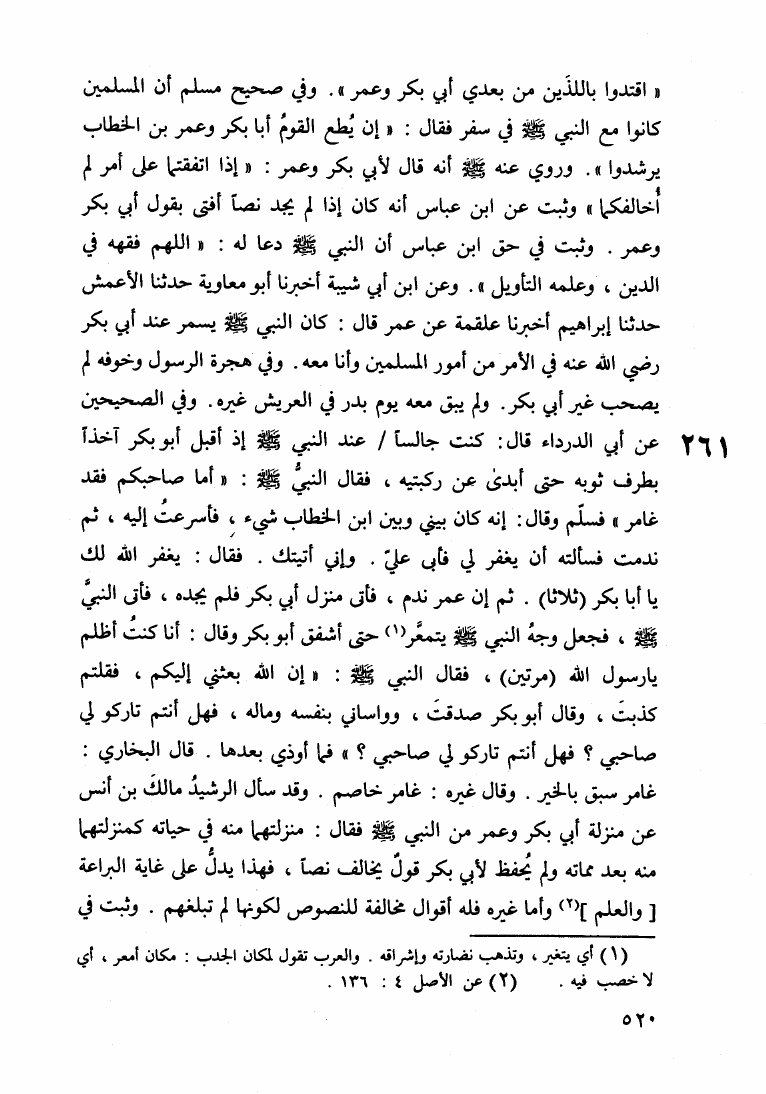 « اقتدوا باللذَين من بعدي أبي بكر وعمر ». وفي صحيح مسلم أن المسلمين
كانوا مع النبي ﷺ في سفر فقال : « إن يُطع القومُ أبا بكر وعمر بن الخطاب
يرشدوا ». وروي عنه ﷺ أنه قال لأبي بكر وعمر : « إذا اتفقتما على أمر لم
أُخالفكما » وثبت عن ابن عباس أنه كان إذا لم يجد نصاً أفتى بقول أبي بكر
وعمر . وثبت في حق ابن عباس أن النبي ﷺ دعا له : « اللهم فقهه في
الدين ، وعلمه التأويل ». وعن ابن أبي شيبة أخبرنا أبو معاوية حدثنا الأعمش
حدثنا إبراهيم أخبرنا علقمة عن عمر قال : كان النبي ﷺ يسمر عند أبي بكر
رضي الله عنه في الأمر من أمور المسلمين وأنا معه. وفي هجرة الرسول وخوفه لم
يصحب غير أبي بكر. ولم يبق معه يوم بدر في العريش غيره. وفي الصحيحين
عن أبي الدرداء قال: كنت جالساً / عند النبي ﷺ إذ أقبل أبو بكر آخذاً ٢٦١
بطرف ثوبه حتى أبدىٰ عن ركبتيه ، فقال النبيُّ ﷺ : « أما صاحبكم فقد
غامر » فسلّم وقال: إنه كان بيني وبين ابن الخطاب شيء ، فأسرعتُ إليه ، ثم
ندمت فسألته أن يغفر لي فأبى عليّ . وإني أتيتك . فقال : يغفر الله لك
يا أبا بكر (ثلاثا) . ثم إن عمر ندم ، فأتى منزل أبي بكر فلم يجده ، فأتى النبيَّ
ﷺ ، فجعل وجهُ النبي ﷺ يتمعَّر(١) حتى أشفق أبو بكر وقال : أنا كنتُ أظلم
يارسول الله (مرتين) ، فقال النبي ﷺ : « إن الله بعثني إليكم ، فقلتم
كذبتَ ، وقال أبو بكر صدقتَ ، وواساني بنفسه وماله ، فهل أنتم تاركو لي
صاحبي ؟ فهل أنتم تاركو لي صاحبي ؟ » فما أوذي بعدها . قال البخاري :
غامر سبق بالخير . وقال غيره : غامر خاصم . وقد سأل الرشيدُ مالكَ بن أنس
عن منزلة أبي بكر وعمر من النبي ﷺ فقال : منزلتهما منه في حياته كمنزلتهما
منه بعد مماته ولم يُحفظ لأبي بكر قولٌ يخالف نصاً ، فهذا يدلُّ على غاية البراعة
[ والعلم ](٢) وأما غيره فله أقوال مخالفة للنصوص لكونها لم تبلغهم . وثبت في
(١) أي يتغير ، وتذهب نضارته وإشراقه . والعرب تقول لمكان الجدب : مكان أمعر ، أي
لا خصب فيه . (٢) عن الأصل ٤ : ١٣٦ .
٥٢٠